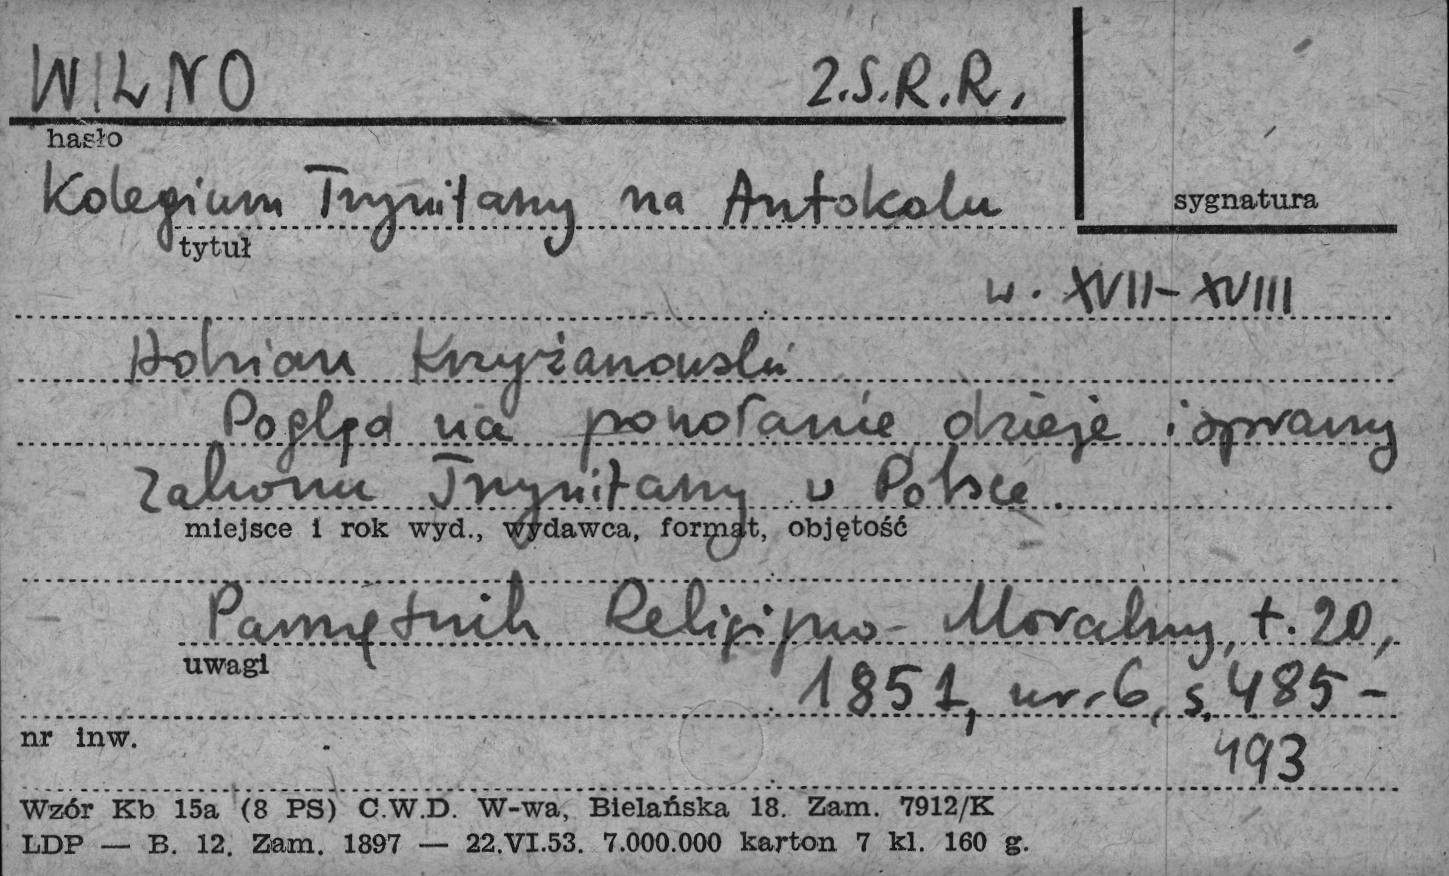 WILNO Z.S.R.R.
hasło
Kolegium Trynitarzy na Antokolu
sygnatura
tytuł
w. XVII-XVIII
Adrian Krzyżanowski
Pogląd na powołanie dzieje i sprawy
Zakonu Trynitarzy w Polsce.
miejsce i rok wyd., wydawca, format, objętość
Pamiętnik Religijno-Moralny, t. 20,
uwagi
1851, nr. 6, s. 485-
493
nr inw.
Wzór Kb 15a (8 PS) C.W.D. W-wa, Bielańska 18. Zam. 7912/K
LDP — B. 12. Zam. 1897 — 22.VI.53. 7.000.000 karton 7 kl. 160 g.